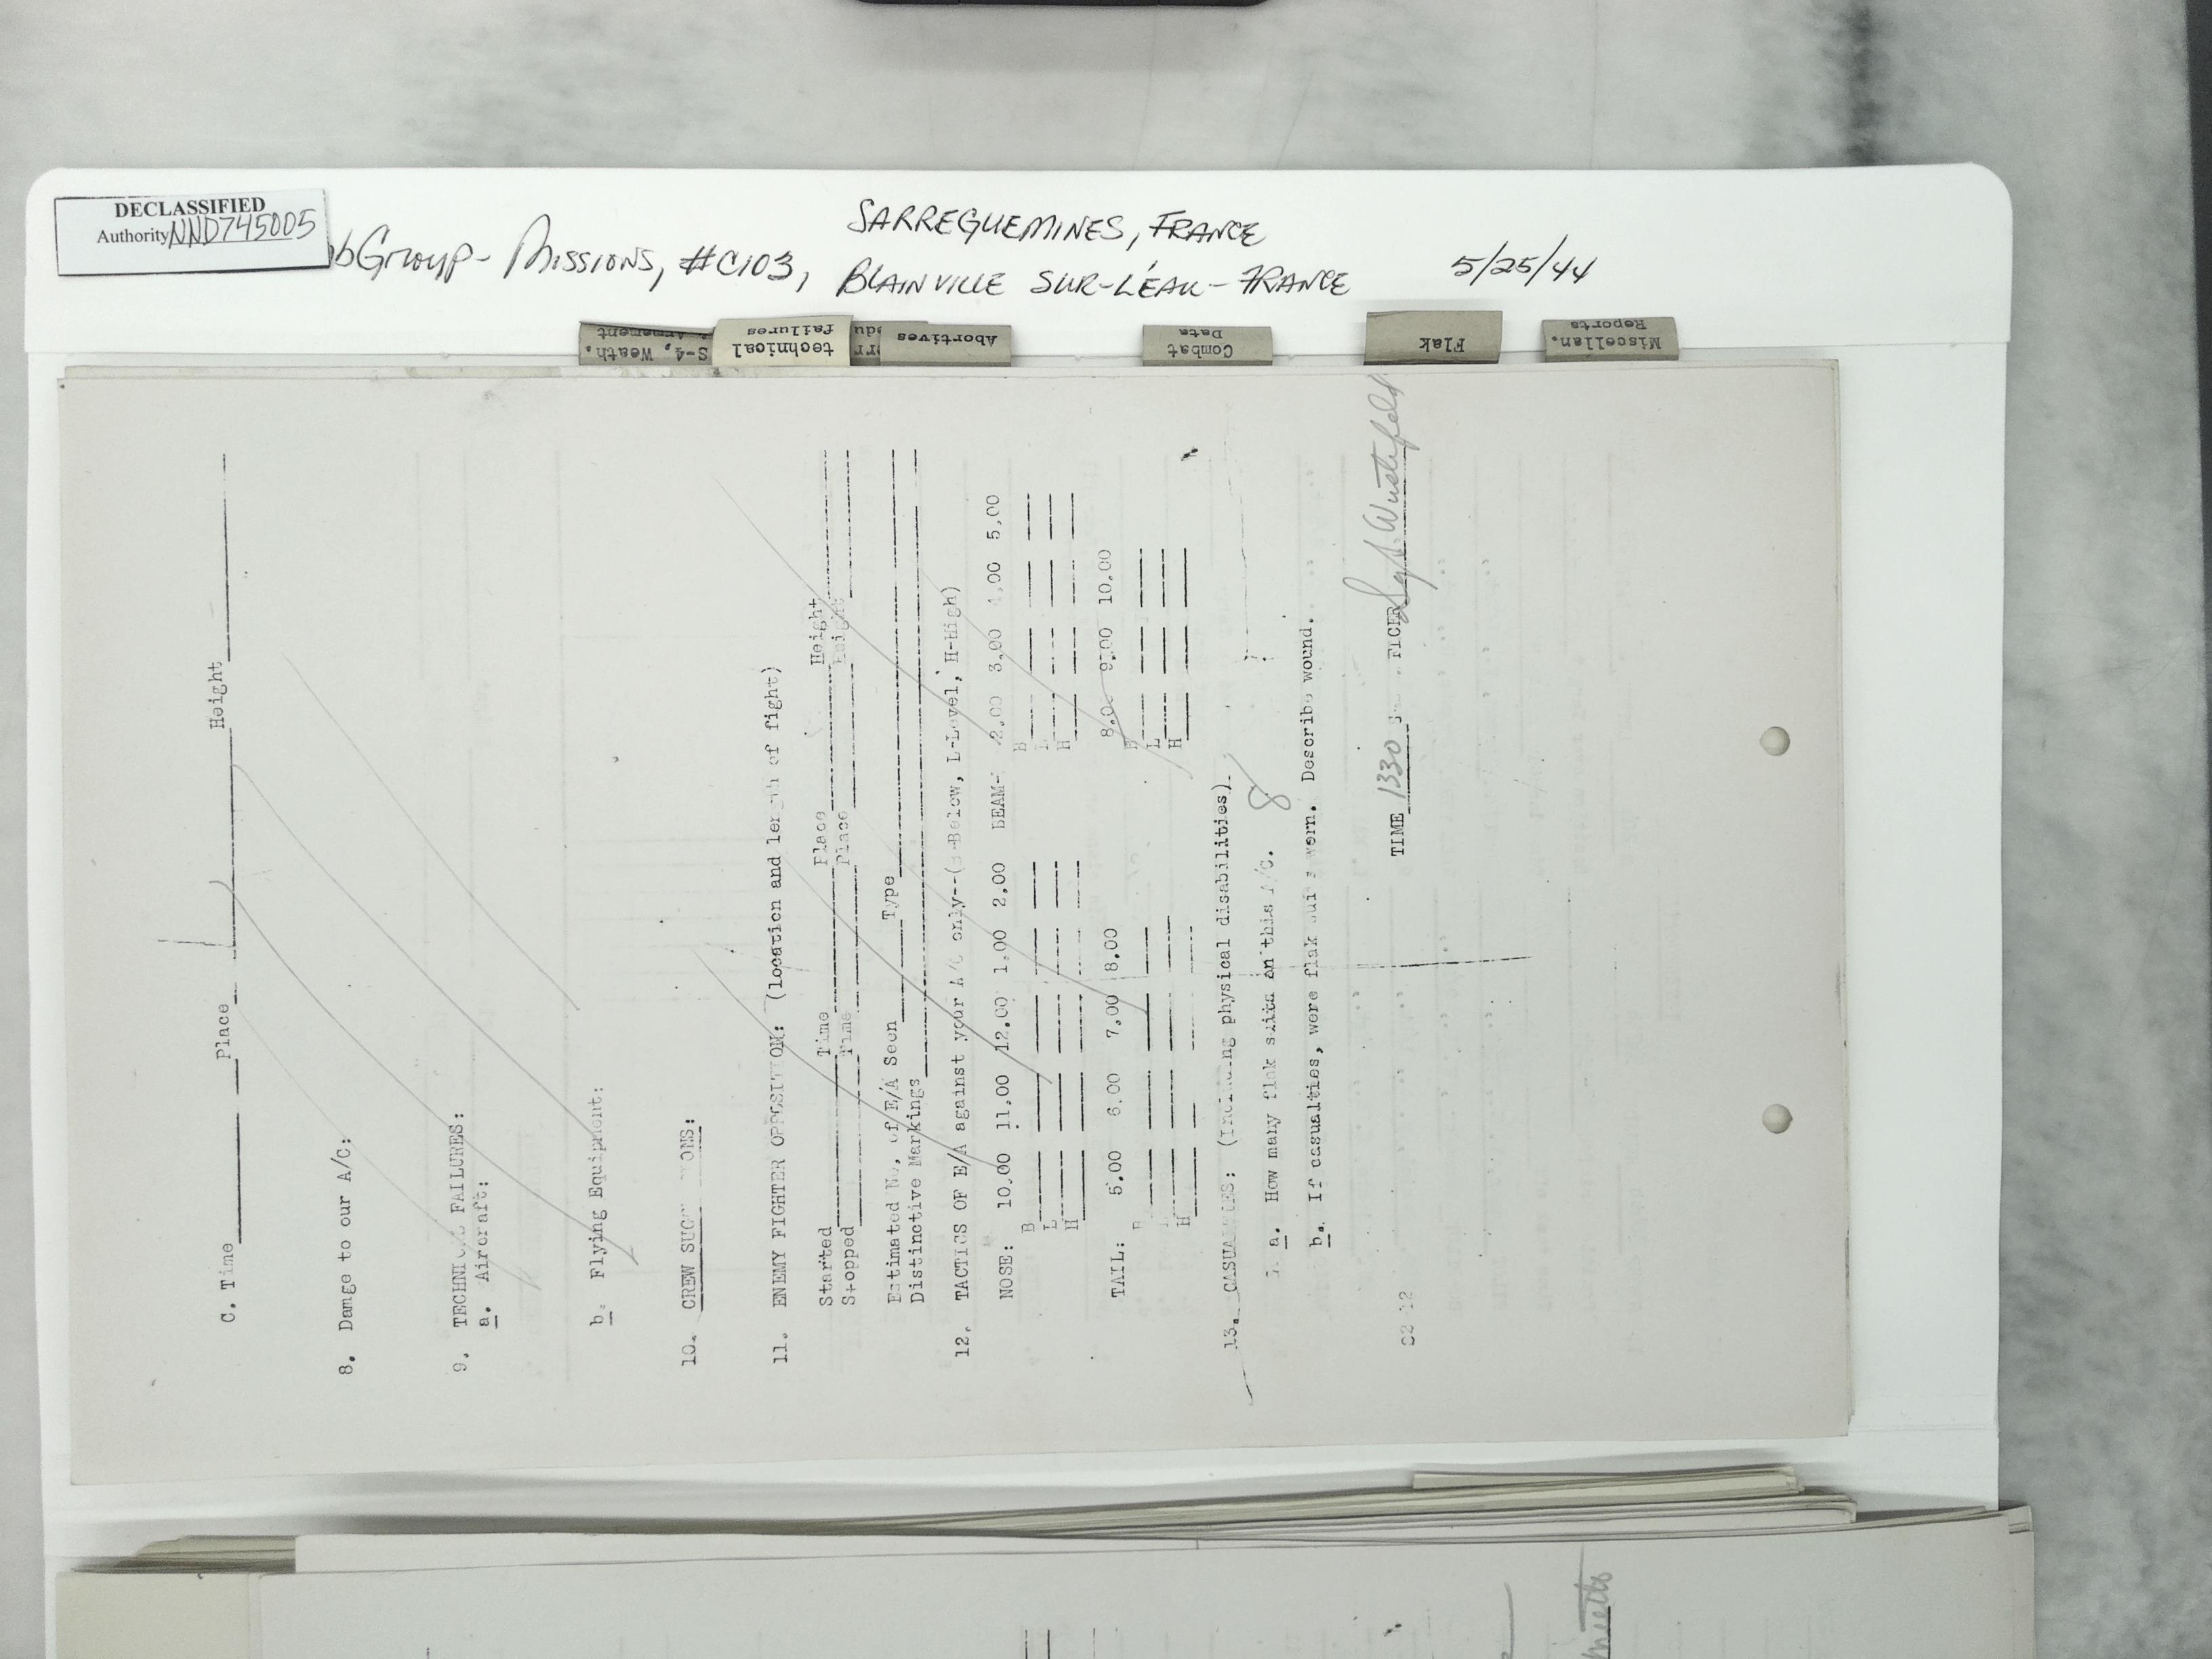 DECLASSIFIED
Authority NND745005
bGroup- Missions, #C103,
SARREGUEMINES, FRANCE
BLAINVILLE SUR-L'EAU- FRANCE
5/25/44
S-4, Weath.
Armement
technical
failures
Abortives
Combat
Data
Flak
Miscellan.
Reports
C. Time Place Height
8. Damge to our A/C:
9. TECHNICAL FAILURES:
a. Aircraft:
b. Flying Equipment:
10. CREW
11. ENEMY FIGHTER OPPOSITION: (location and length of fight)
Started Time Place Height
Stopped Time Place Height
Estimated No. of E/A Seen Type
Distinctive Markings
12. TACTICS OF E/A against your A/C only--(B-Below, L-Level, H-High)
NOSE: 10.00 11.00 12.00 1.00 2.00 BEAM- 2.00 3.00 4.00 5.00
B B
L L
H H
TAIL: 5.00 6.00 7.00 8.00 8.00 9.00 10.00
B B
L L
H H
13. CASUALTIES: (Including physical disabilities).
a. How many flak suits on this A/C. 8
b. If casualties, were flak suits worn. Describe wound.
S2-12 TIME 1330 Sgt Wustefeld